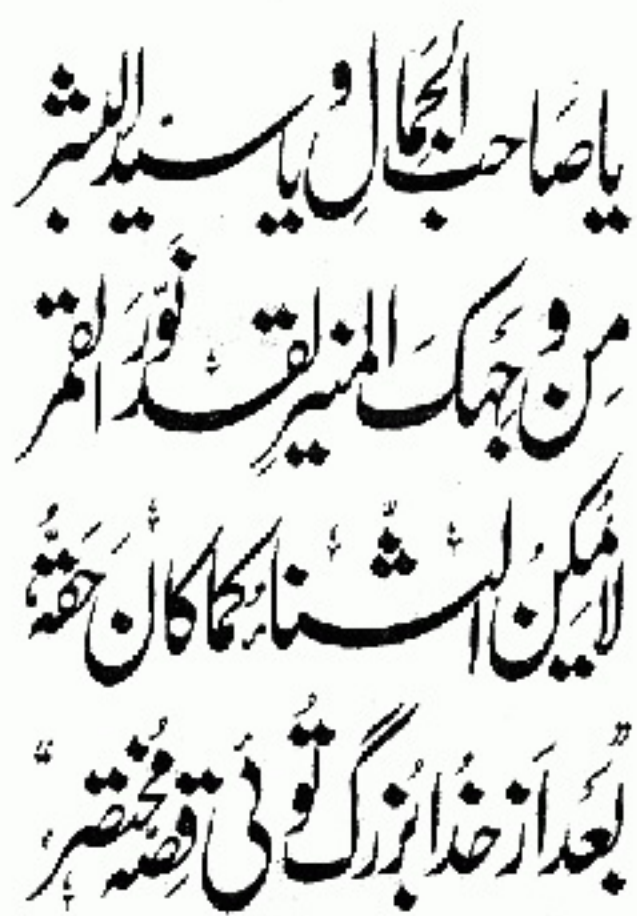 یا صَاحبَ الجَمالِ و یا سید البشر
مِن وَّجهِكَ المنیرِ لقد نَوّرَ القمر
لا یُمکِنُ الثّناءُ کما کانَ حَقّهُ
بَعد اَز خُدا بُزرگ تُوئی قِصہ مُختصر